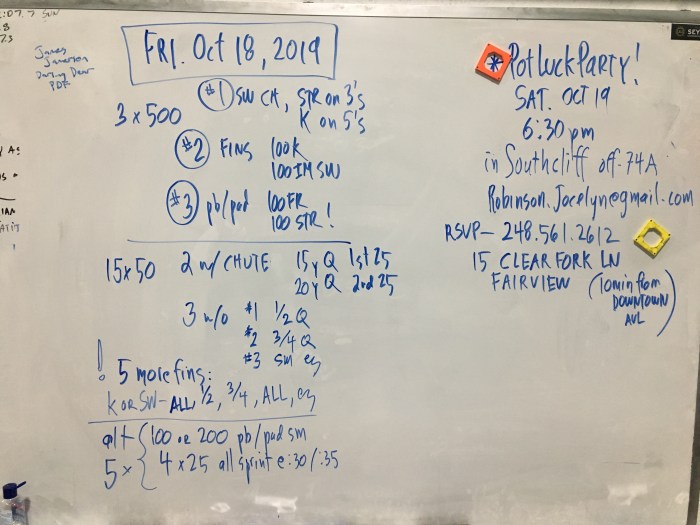 FRI. Oct 18, 2019
3 x 500
#1 SW CH, STR on 3's
K on 5's
#2 FINS 100K
100 IM SW
#3 pb/pad 100 FR
100 STR!
15x50 2 w/ CHUTE 15y Q 1st 25
20y Q 2nd 25
3 w/o #1 1/2 Q
#2 3/4 Q
#3 SM ez
! 5 more fins:
K OR SW- ALL, 1/2, 3/4, ALL, ez
alt 100 or 200 pb/pad sm
5x 4 x 25 all sprint e :30/:35
* PotLuck PARTY!
SAT. OCT 19
6:30 pm
in Southcliff off 74A
Robinson.Jocelyn@gmail.com
RSVP- 248.561.2612
15 CLEAR FORK LN
FAIRVIEW (10 min from
DOWNTOWN
AVL)
James
Jamerson
PDF